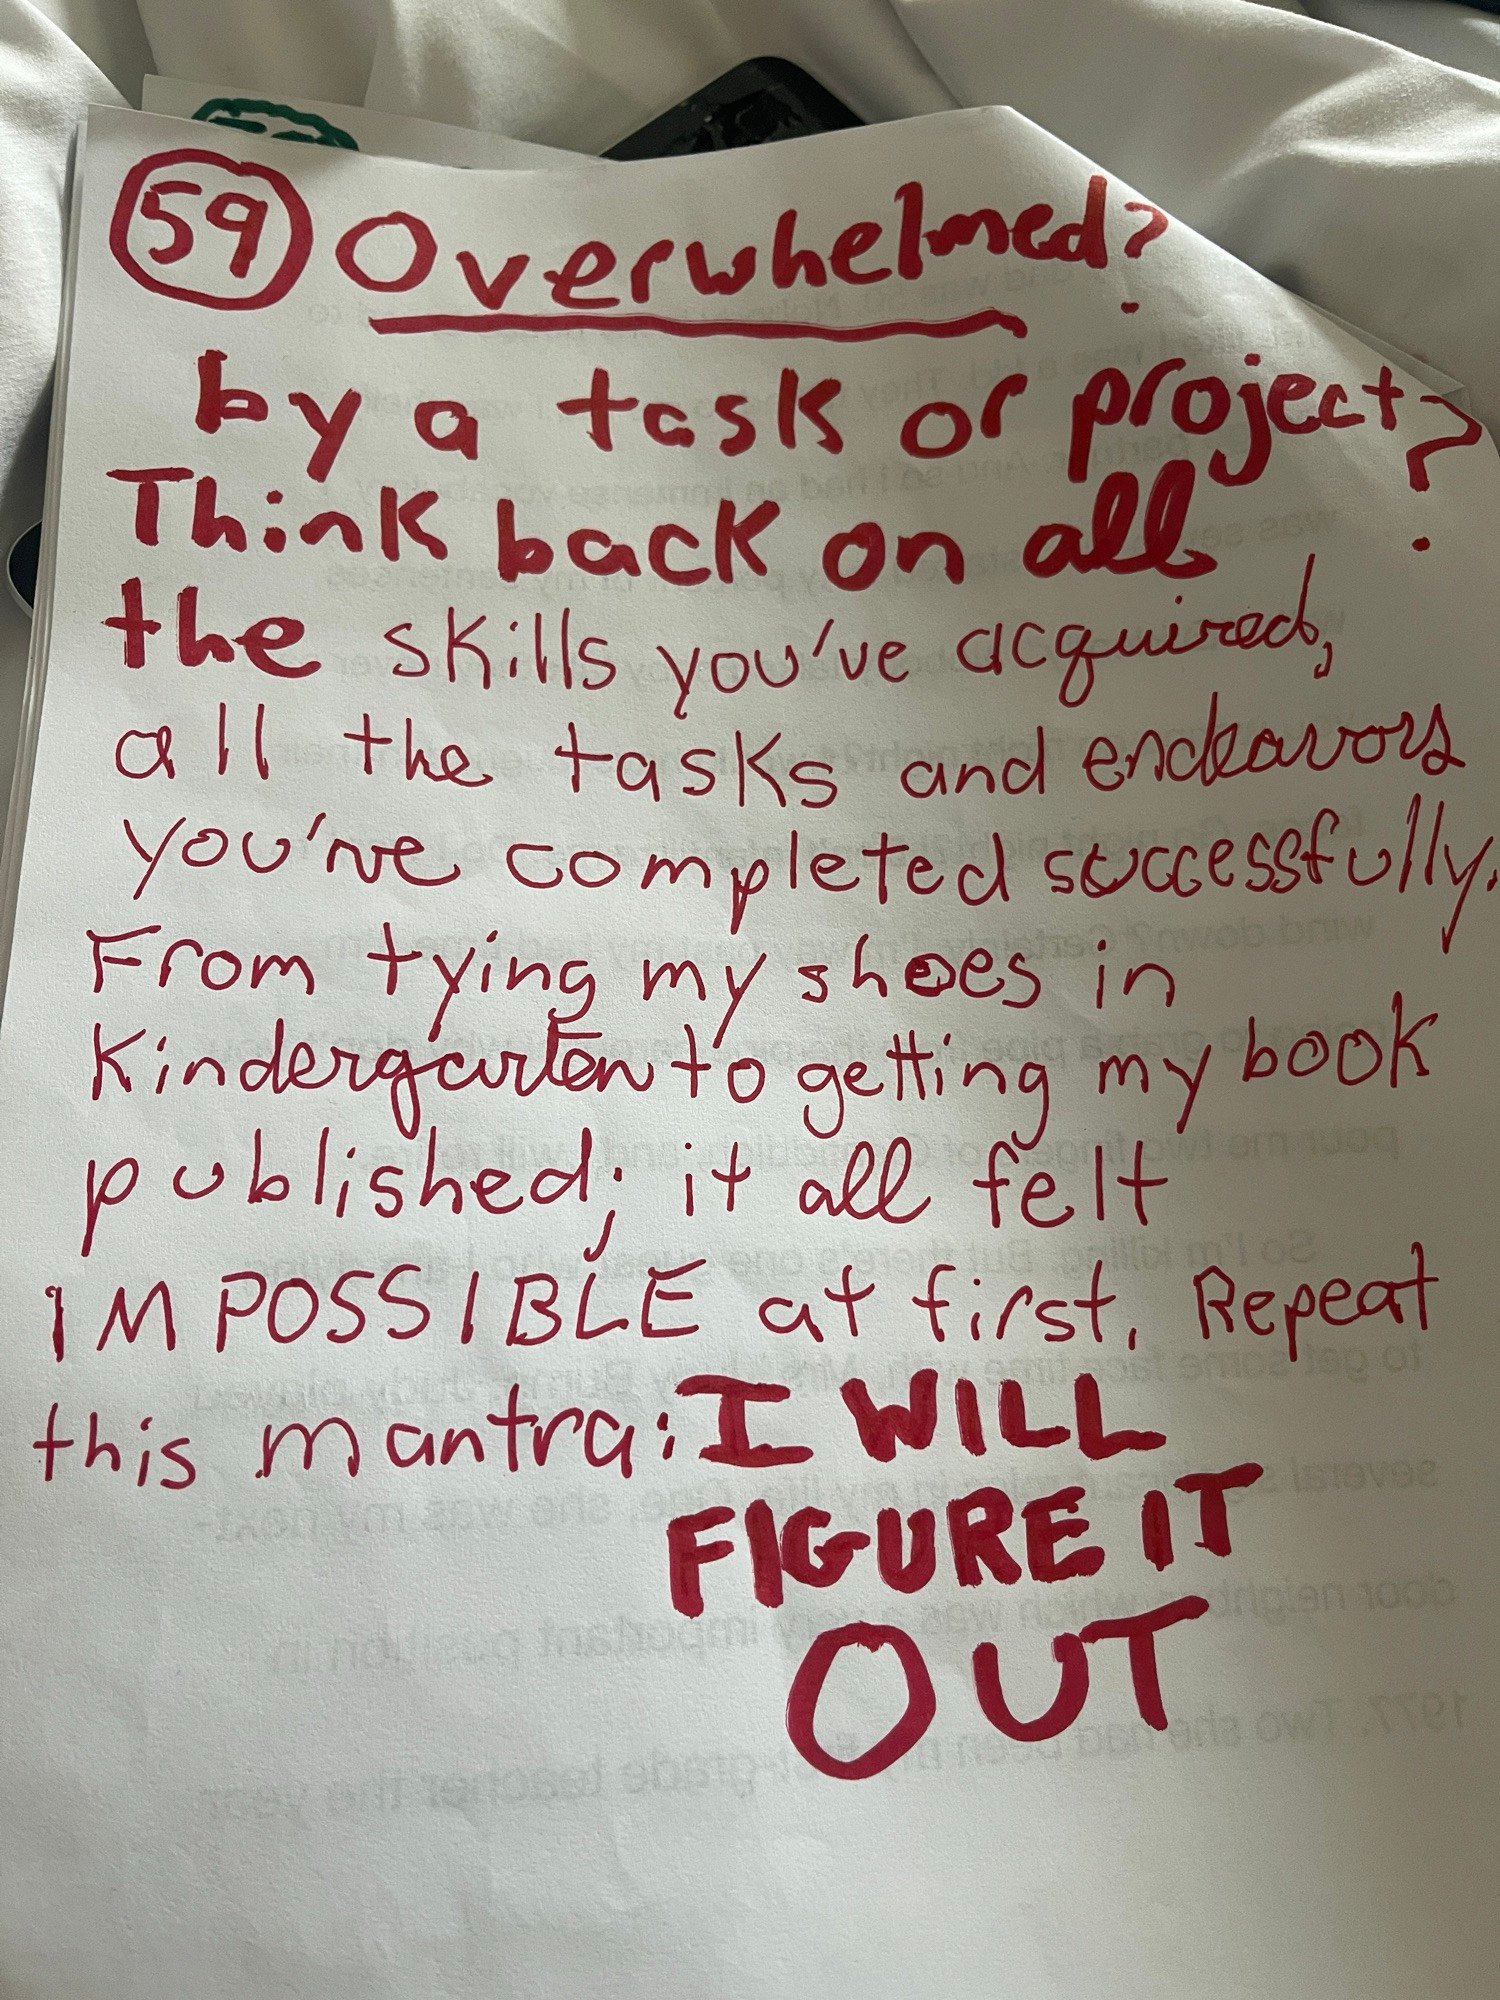 59 Overwhelmed?
by a task or project?
Think back on all
the skills you've acquired,
all the tasks and endeavors
you've completed successfully.
From tying my shoes in
Kindergarten to getting my book
published; it all felt
IMPOSSIBLE at first. Repeat
this mantra: I WILL
FIGURE IT
OUT